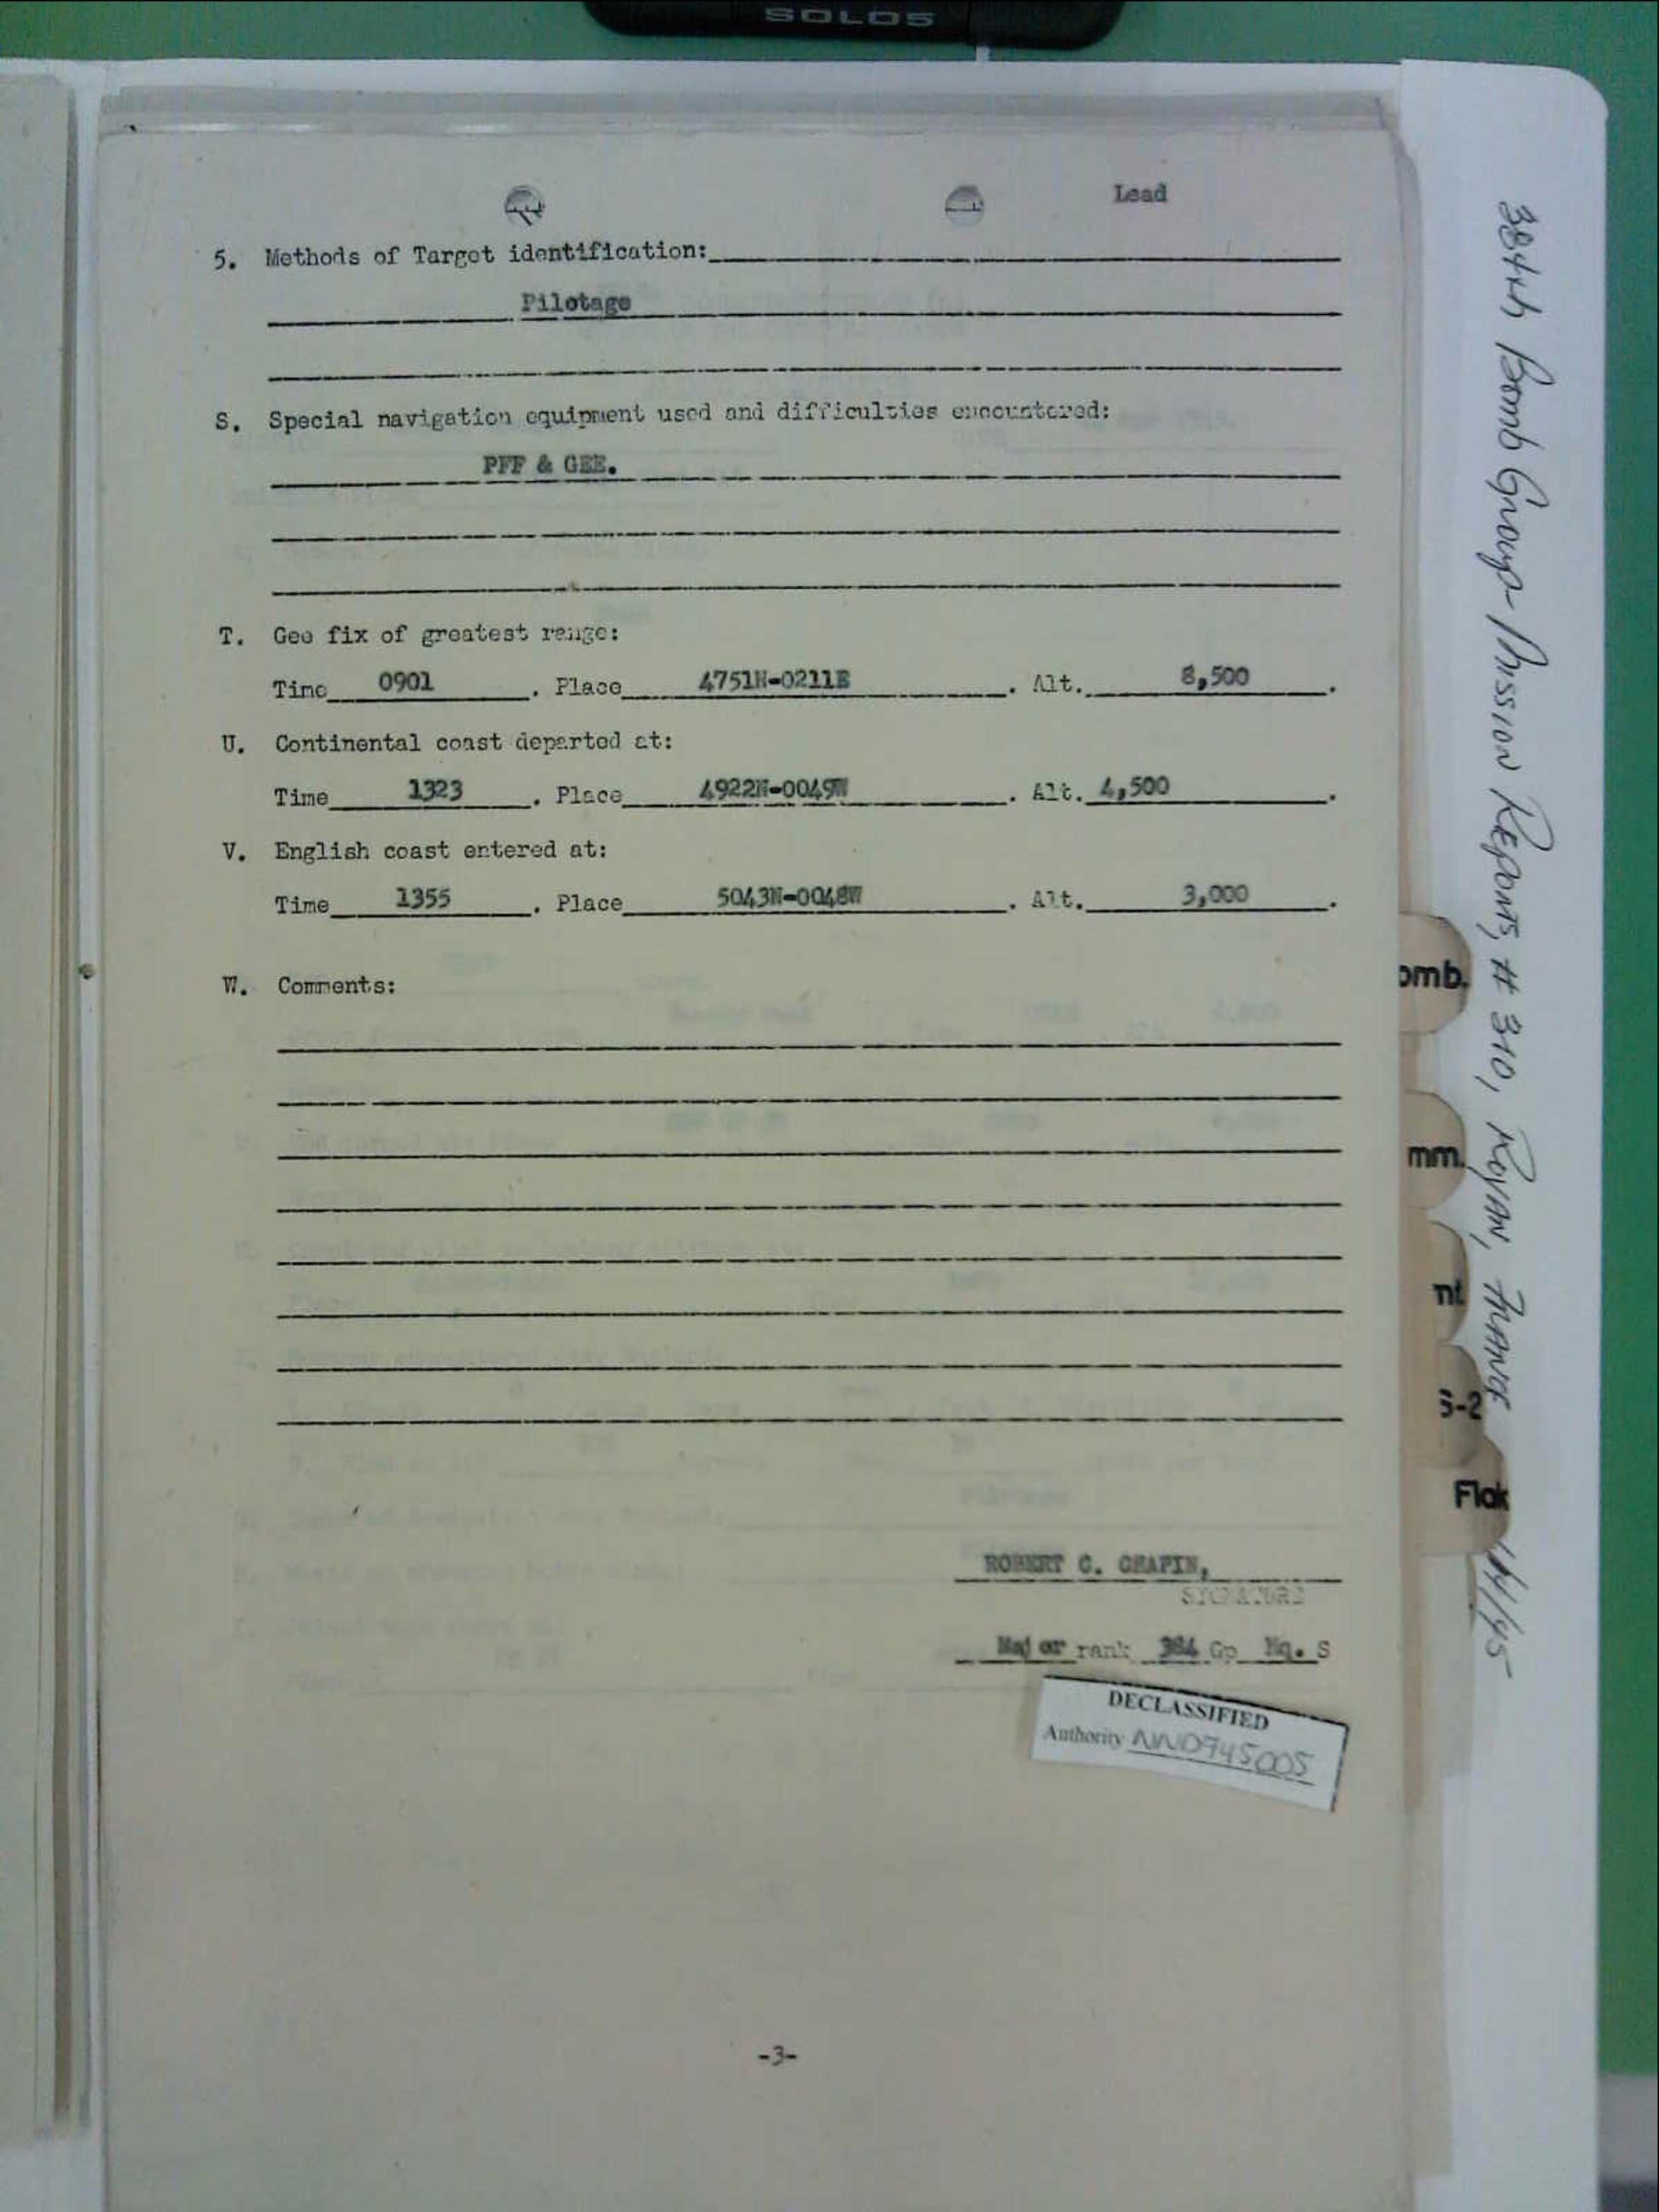 SOLO5
Lead
5. Methods of Target identification:
Pilotage
S. Special navigation equipment used and difficulties encountered:
PFF & GEE.
T. Gee fix of greatest range:
Time 0901 . Place 4751N-0211E . Alt. 8,500 .
U. Continental coast departed at:
Time 1323 . Place 4922N-0049W . Alt. 4,500 .
V. English coast entered at:
Time 1355 . Place 5043N-0048W . Alt. 3,000 .
W. Comments:
ROBERT C. CHAPIN,
SIGNATURE
Major rank 384 Gp Hq. S
DECLASSIFIED
Authority NND945005
-3-
384th Bomb Group - Mission Reports, # 310, Royan, France 14/45
omb.
mm.
nt
S-2
Flak